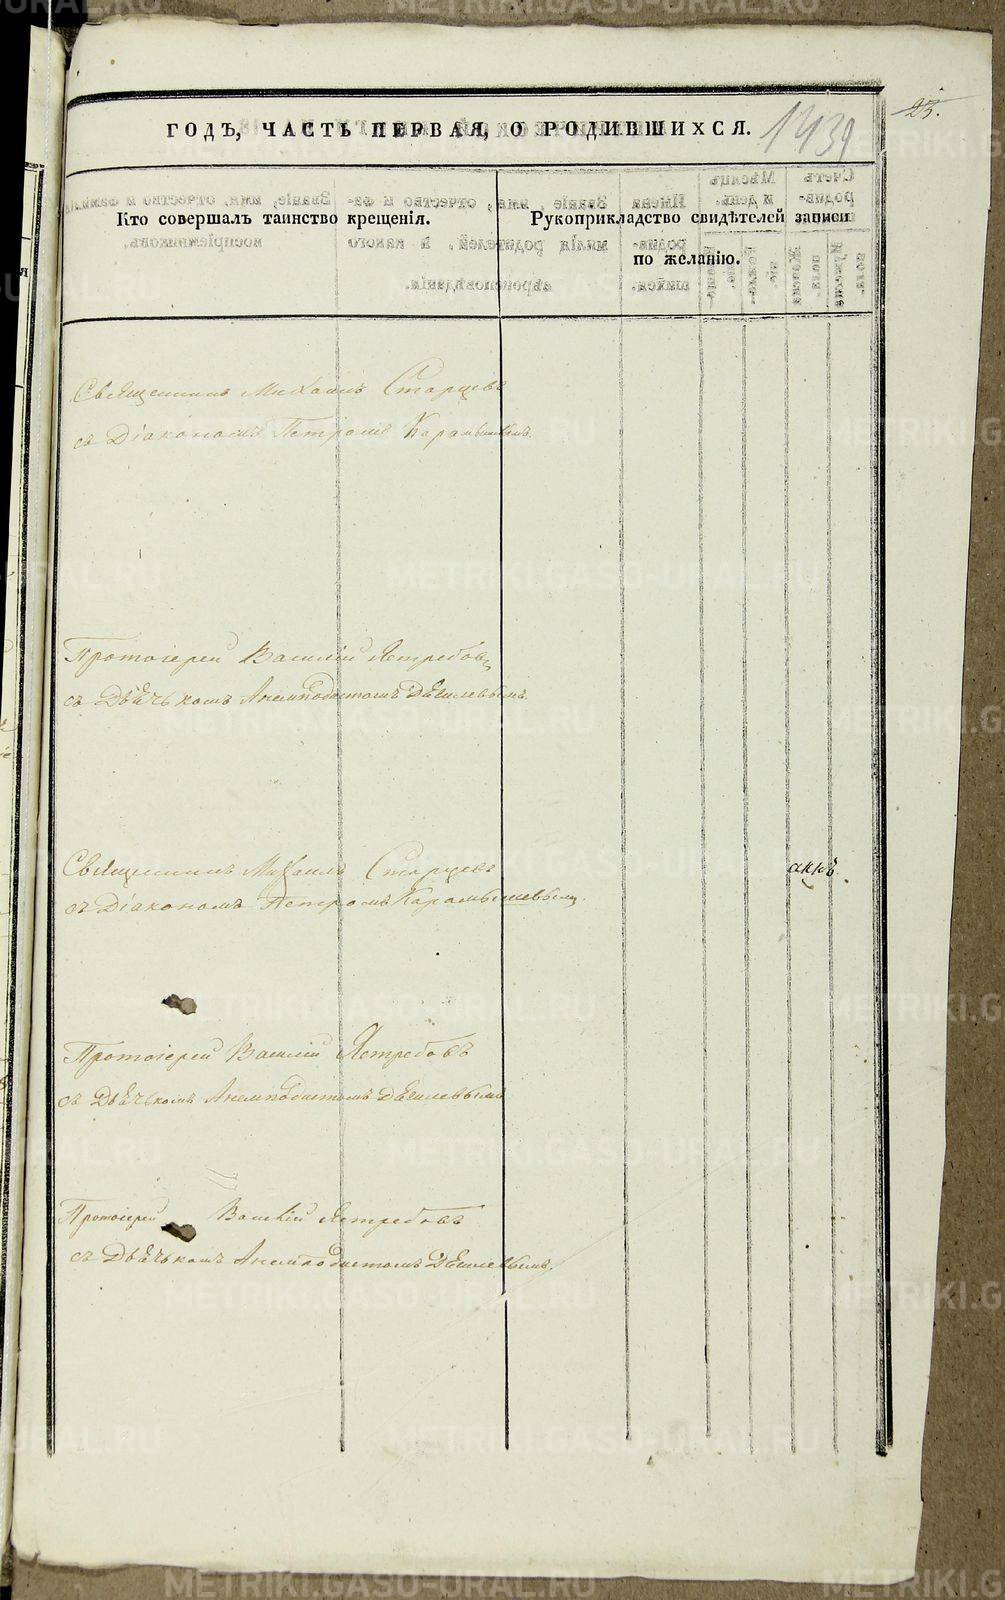 ГОДЪ, ЧАСТЬ ПЕРВАЯ, О РОДИВШИХСЯ.
1439
23.
Кто совершалъ таинство крещенія.
Рукоприкладство свидѣтелей записи
по желанію.
Священникъ Михаилъ Старцевъ
съ Діакономъ Петромъ Карамышевымъ.
Протоіерей Василій Ястребовъ
съ Дьячькомъ Анемподистомъ
Священникъ Михаилъ Старцевъ
съ Діакономъ Петромъ Карамышевымъ.
Протоіерей Василій Ястребовъ
съ Дьячькомъ Анемподистомъ
Протоіерей Василій Ястребовъ
съ Дьячькомъ Анемподистомъ
METRIKI.GASO-URAL.RU